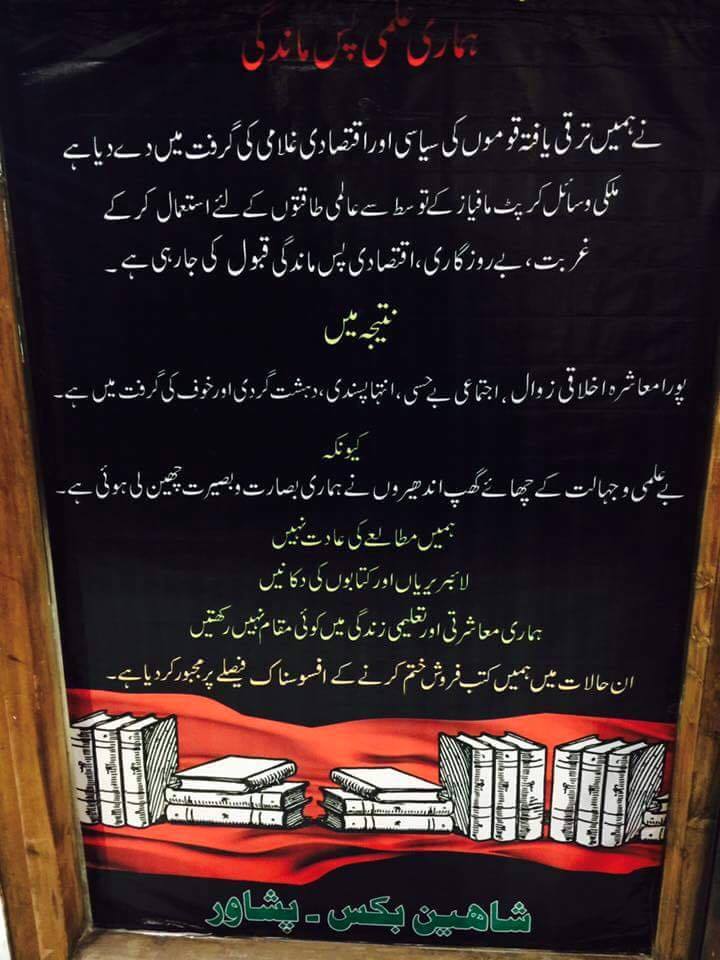 ہماری علمی پس ماندگی
نے ہمیں ترقی یافتہ قوموں کی سیاسی اور اقتصادی غلامی کی گرفت میں دے دیا ہے
ملکی وسائل کرپٹ مافیاز کے توسط سے عالمی طاقتوں کے لئے استعمال کر کے
غربت، بے روزگاری، اقتصادی پس ماندگی قبول کی جا رہی ہے۔
نتیجہ میں
پورا معاشرہ اخلاقی زوال، اجتماعی بے حسی، انتہا پسندی، دہشت گردی اور خوف کی گرفت میں ہے۔
کیونکہ
بے علمی و جہالت کے چھائے گھپ اندھیروں نے ہماری بصارت و بصیرت چھین لی ہوئی ہے۔
ہمیں مطالعے کی عادت نہیں
لائبریریاں اور کتابوں کی دکانیں
ہماری معاشرتی اور تعلیمی زندگی میں کوئی مقام نہیں رکھتیں
ان حالات میں ہمیں کتب فروش ختم کرنے کے افسوسناک فیصلے پر مجبور کر دیا ہے۔
شاھین بکس - پشاور